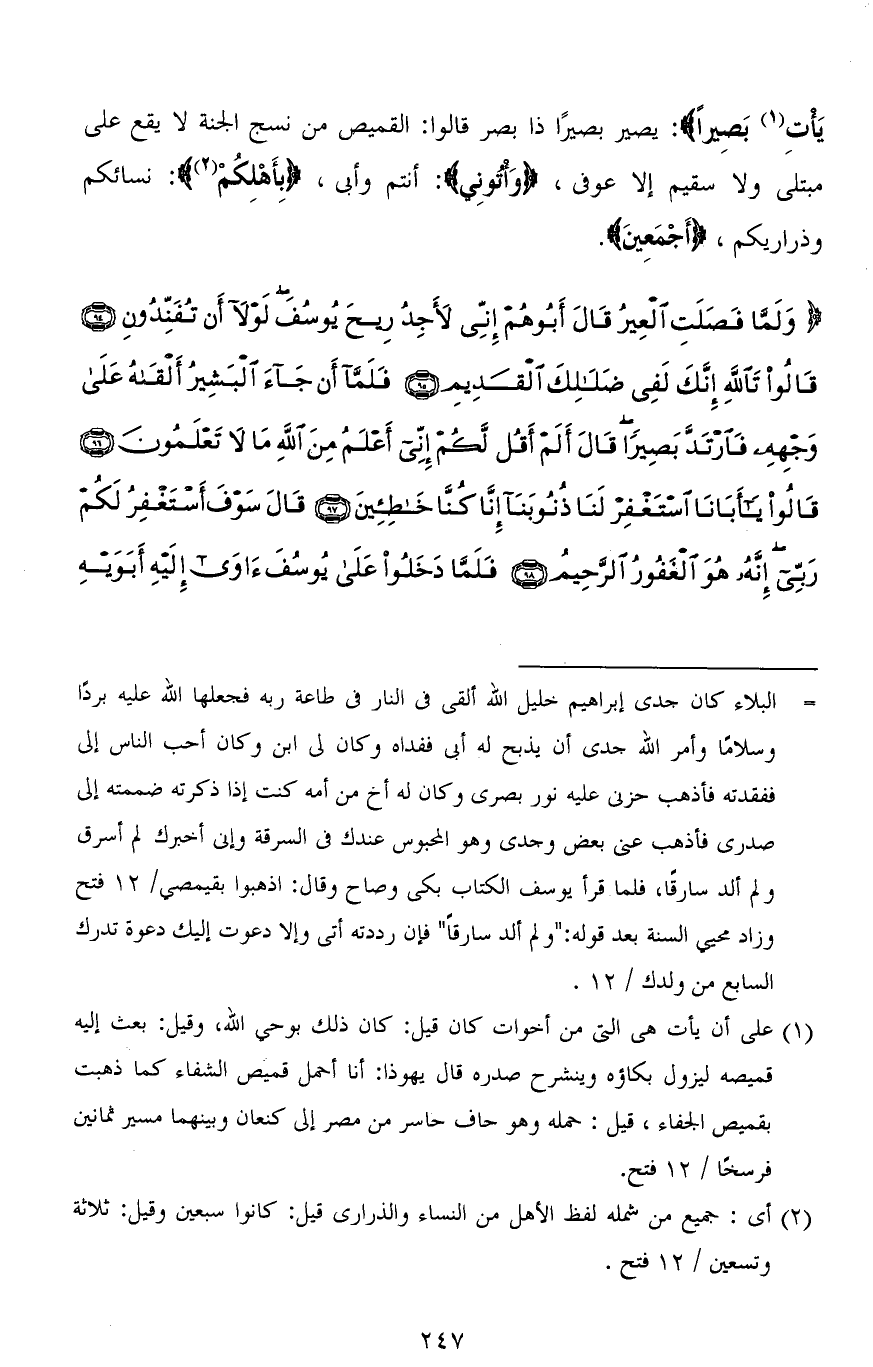 يَأْتِ(١) بَصِيراً﴾: يصير بصيرًا ذا بصر قالوا: القميص من نسج الجنة لا يقع على
مبتلى ولا سقيم إلا عوفى ، ﴿وَأْتُونِي﴾: أنتم وأبى ، ﴿بِأَهْلِكُمْ(٢)﴾: نسائكم
وذراريكم ، ﴿أَجْمَعِينَ﴾.
﴿ وَلَمَّا فَصَلَتِ ٱلْعِيرُ قَالَ أَبُوهُمْ إِنِّى لَأَجِدُ رِيحَ يُوسُفَ ۖ لَوْلَآ أَن تُفَنِّدُونِ ٩٤
قَالُوا۟ تَٱللَّهِ إِنَّكَ لَفِى ضَلَـٰلِكَ ٱلْقَدِيمِ ٩٥ فَلَمَّآ أَن جَآءَ ٱلْبَشِيرُ أَلْقَىٰهُ عَلَىٰ
وَجْهِهِۦ فَٱرْتَدَّ بَصِيرًا ۖ قَالَ أَلَمْ أَقُل لَّكُمْ إِنِّىٓ أَعْلَمُ مِنَ ٱللَّهِ مَا لَا تَعْلَمُونَ ٩٦
قَالُوا۟ يَـٰٓأَبَانَا ٱسْتَغْفِرْ لَنَا ذُنُوبَنَآ إِنَّا كُنَّا خَـٰطِـِٔينَ ٩٧ قَالَ سَوْفَ أَسْتَغْفِرُ لَكُمْ
رَبِّىٓ ۖ إِنَّهُۥ هُوَ ٱلْغَفُورُ ٱلرَّحِيمُ ٩٨ فَلَمَّا دَخَلُوا۟ عَلَىٰ يُوسُفَ ءَاوَىٰٓ إِلَيْهِ أَبَوَيْهِ
= البلاء كان جدى إبراهيم خليل الله ألقى فى النار فى طاعة ربه فجعلها الله عليه بردًا
وسلامًا وأمر الله جدى أن يذبح له أبى ففداه وكان لى ابن وكان أحب الناس إلى
ففقدته فأذهب حزنى عليه نور بصرى وكان له أخ من أمه كنت إذا ذكرته ضممته إلى
صدرى فأذهب عنى بعض وجدى وهو المحبوس عندك فى السرقة وإنى أخبرك لم أسرق
ولم ألد سارقًا، فلما قرأ يوسف الكتاب بكى وصاح وقال: اذهبوا بقيمصي/ ١٢ فتح
وزاد محيي السنة بعد قوله:"ولم ألد سارقاً" فإن رددته أتى وإلا دعوت إليك دعوة تدرك
السابع من ولدك / ١٢ .
(١) على أن يأت هى التى من أخوات كان قيل: كان ذلك بوحي الله، وقيل: بعث إليه
قميصه ليزول بكاؤه وينشرح صدره قال يهوذا: أنا أحمل قميص الشفاء كما ذهبت
بقميص الجفاء ، قيل : حمله وهو حاف حاسر من مصر إلى كنعان وبينهما مسير ثمانين
فرسخًا / ١٢ فتح.
(٢) أى : جميع من شمله لفظ الأهل من النساء والذرارى قيل: كانوا سبعين وقيل: ثلاثة
وتسعين / ١٢ فتح .
٢٤٧